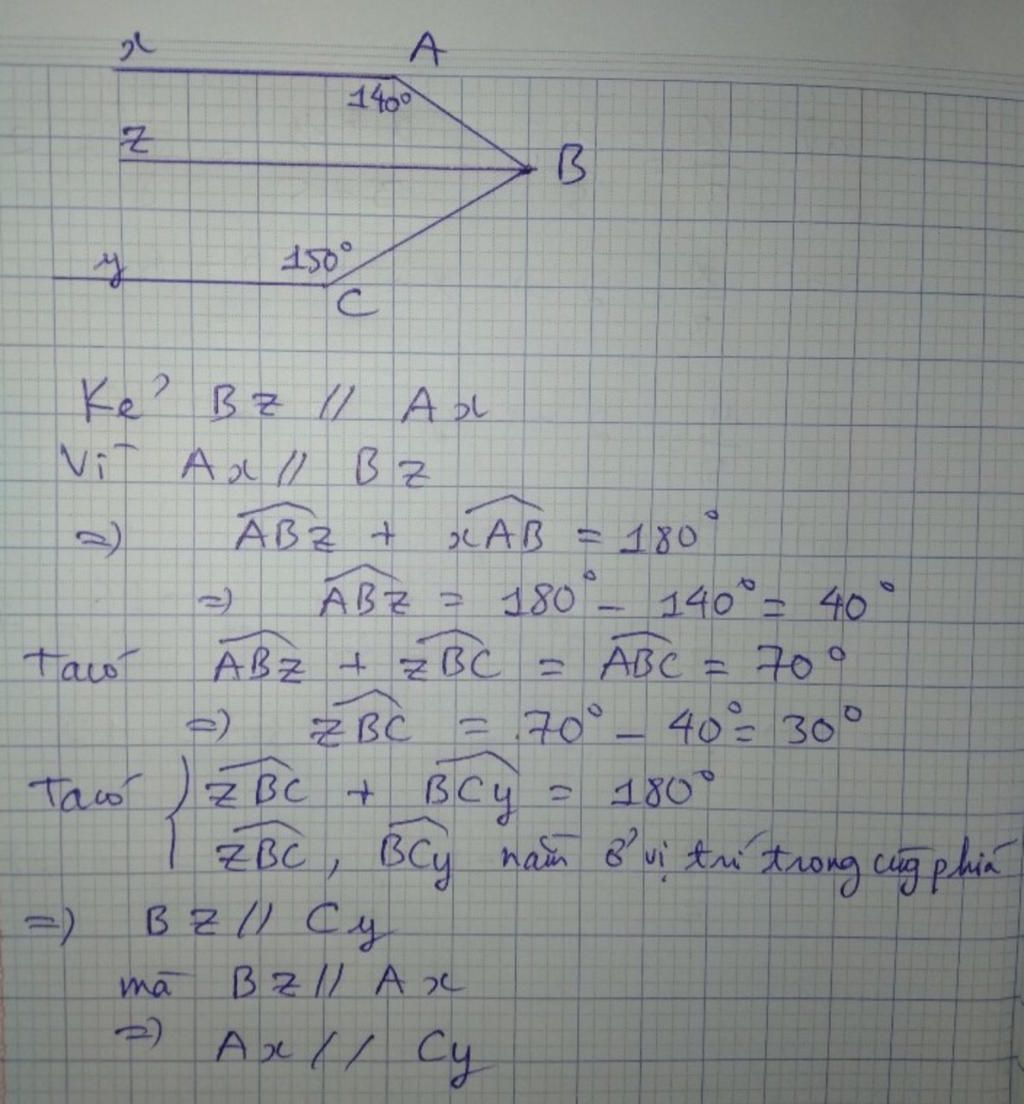 x A
140°
z
B
150°
y
C
Kẻ Bz // Ax
Vì Ax // Bz
=) ABz + xAB = 180°
=) ABz = 180° - 140° = 40°
Ta có ABz + zBC = ABC = 70°
=) zBC = 70° - 40° = 30°
Ta có { zBC + BCy = 180°
zBC, BCy nằm ở vị trí trong cùng phía
=) Bz // Cy
mà Bz // Ax
=) Ax // Cy